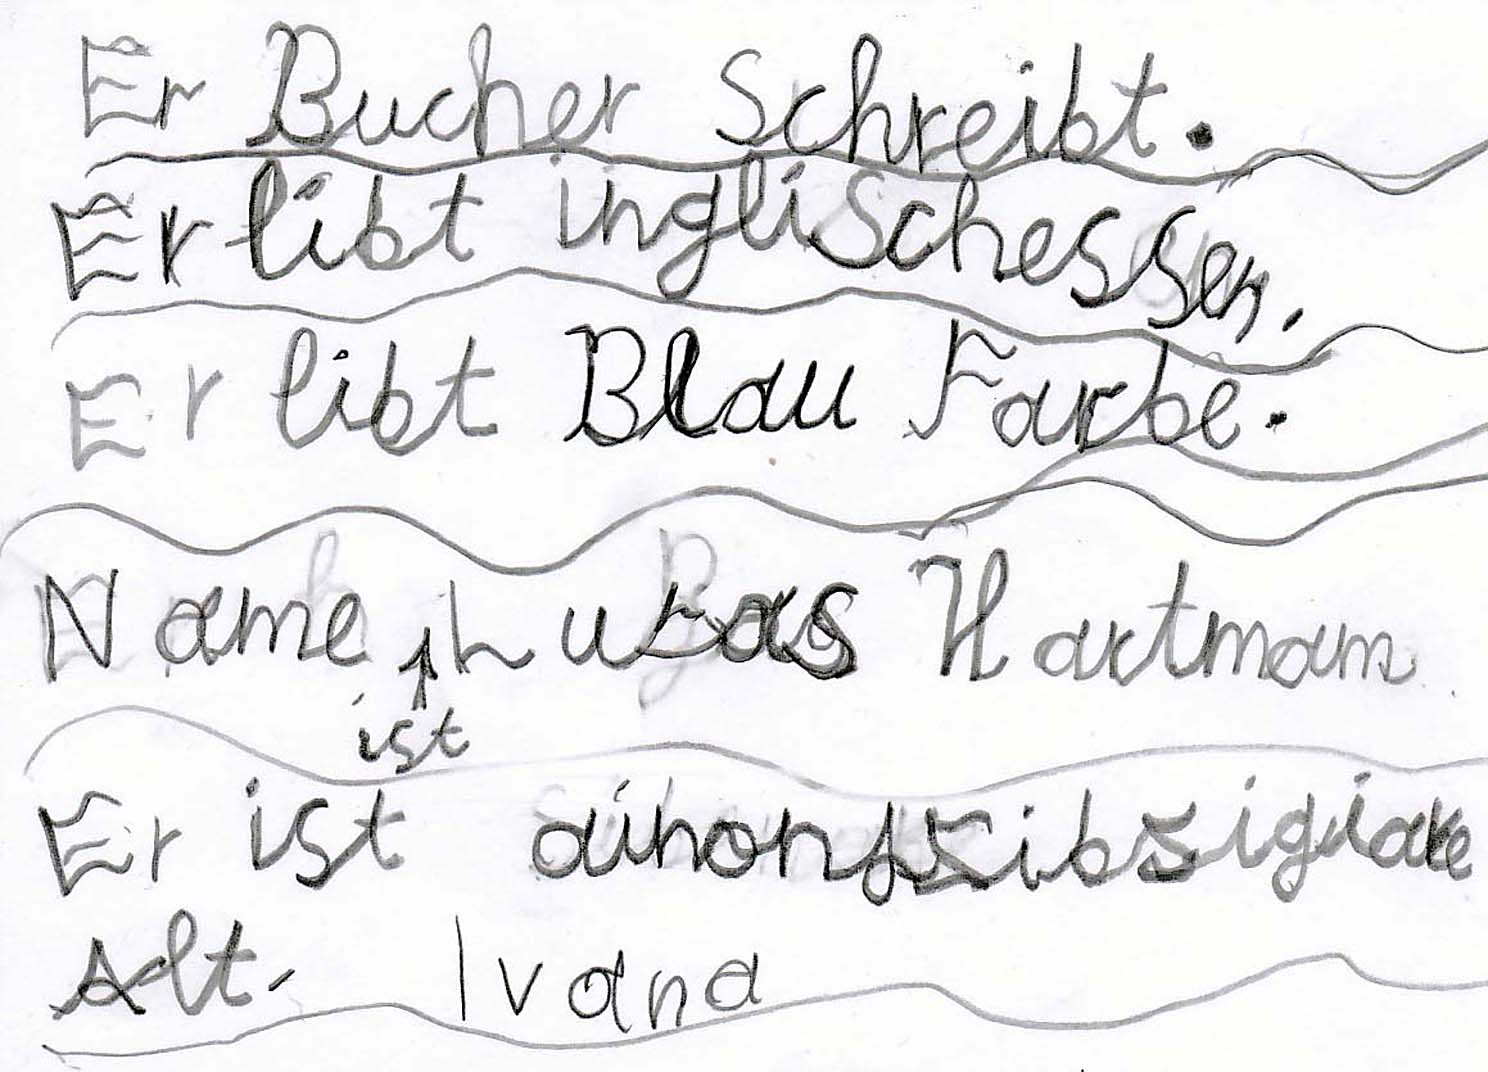 Er Bucher Schreibt.
Er libt inglischessen.
Er libt Blau Farbe.
Name Lukas Hartmam
ist
Er ist aihonzsibzigiare
Alt. Ivana